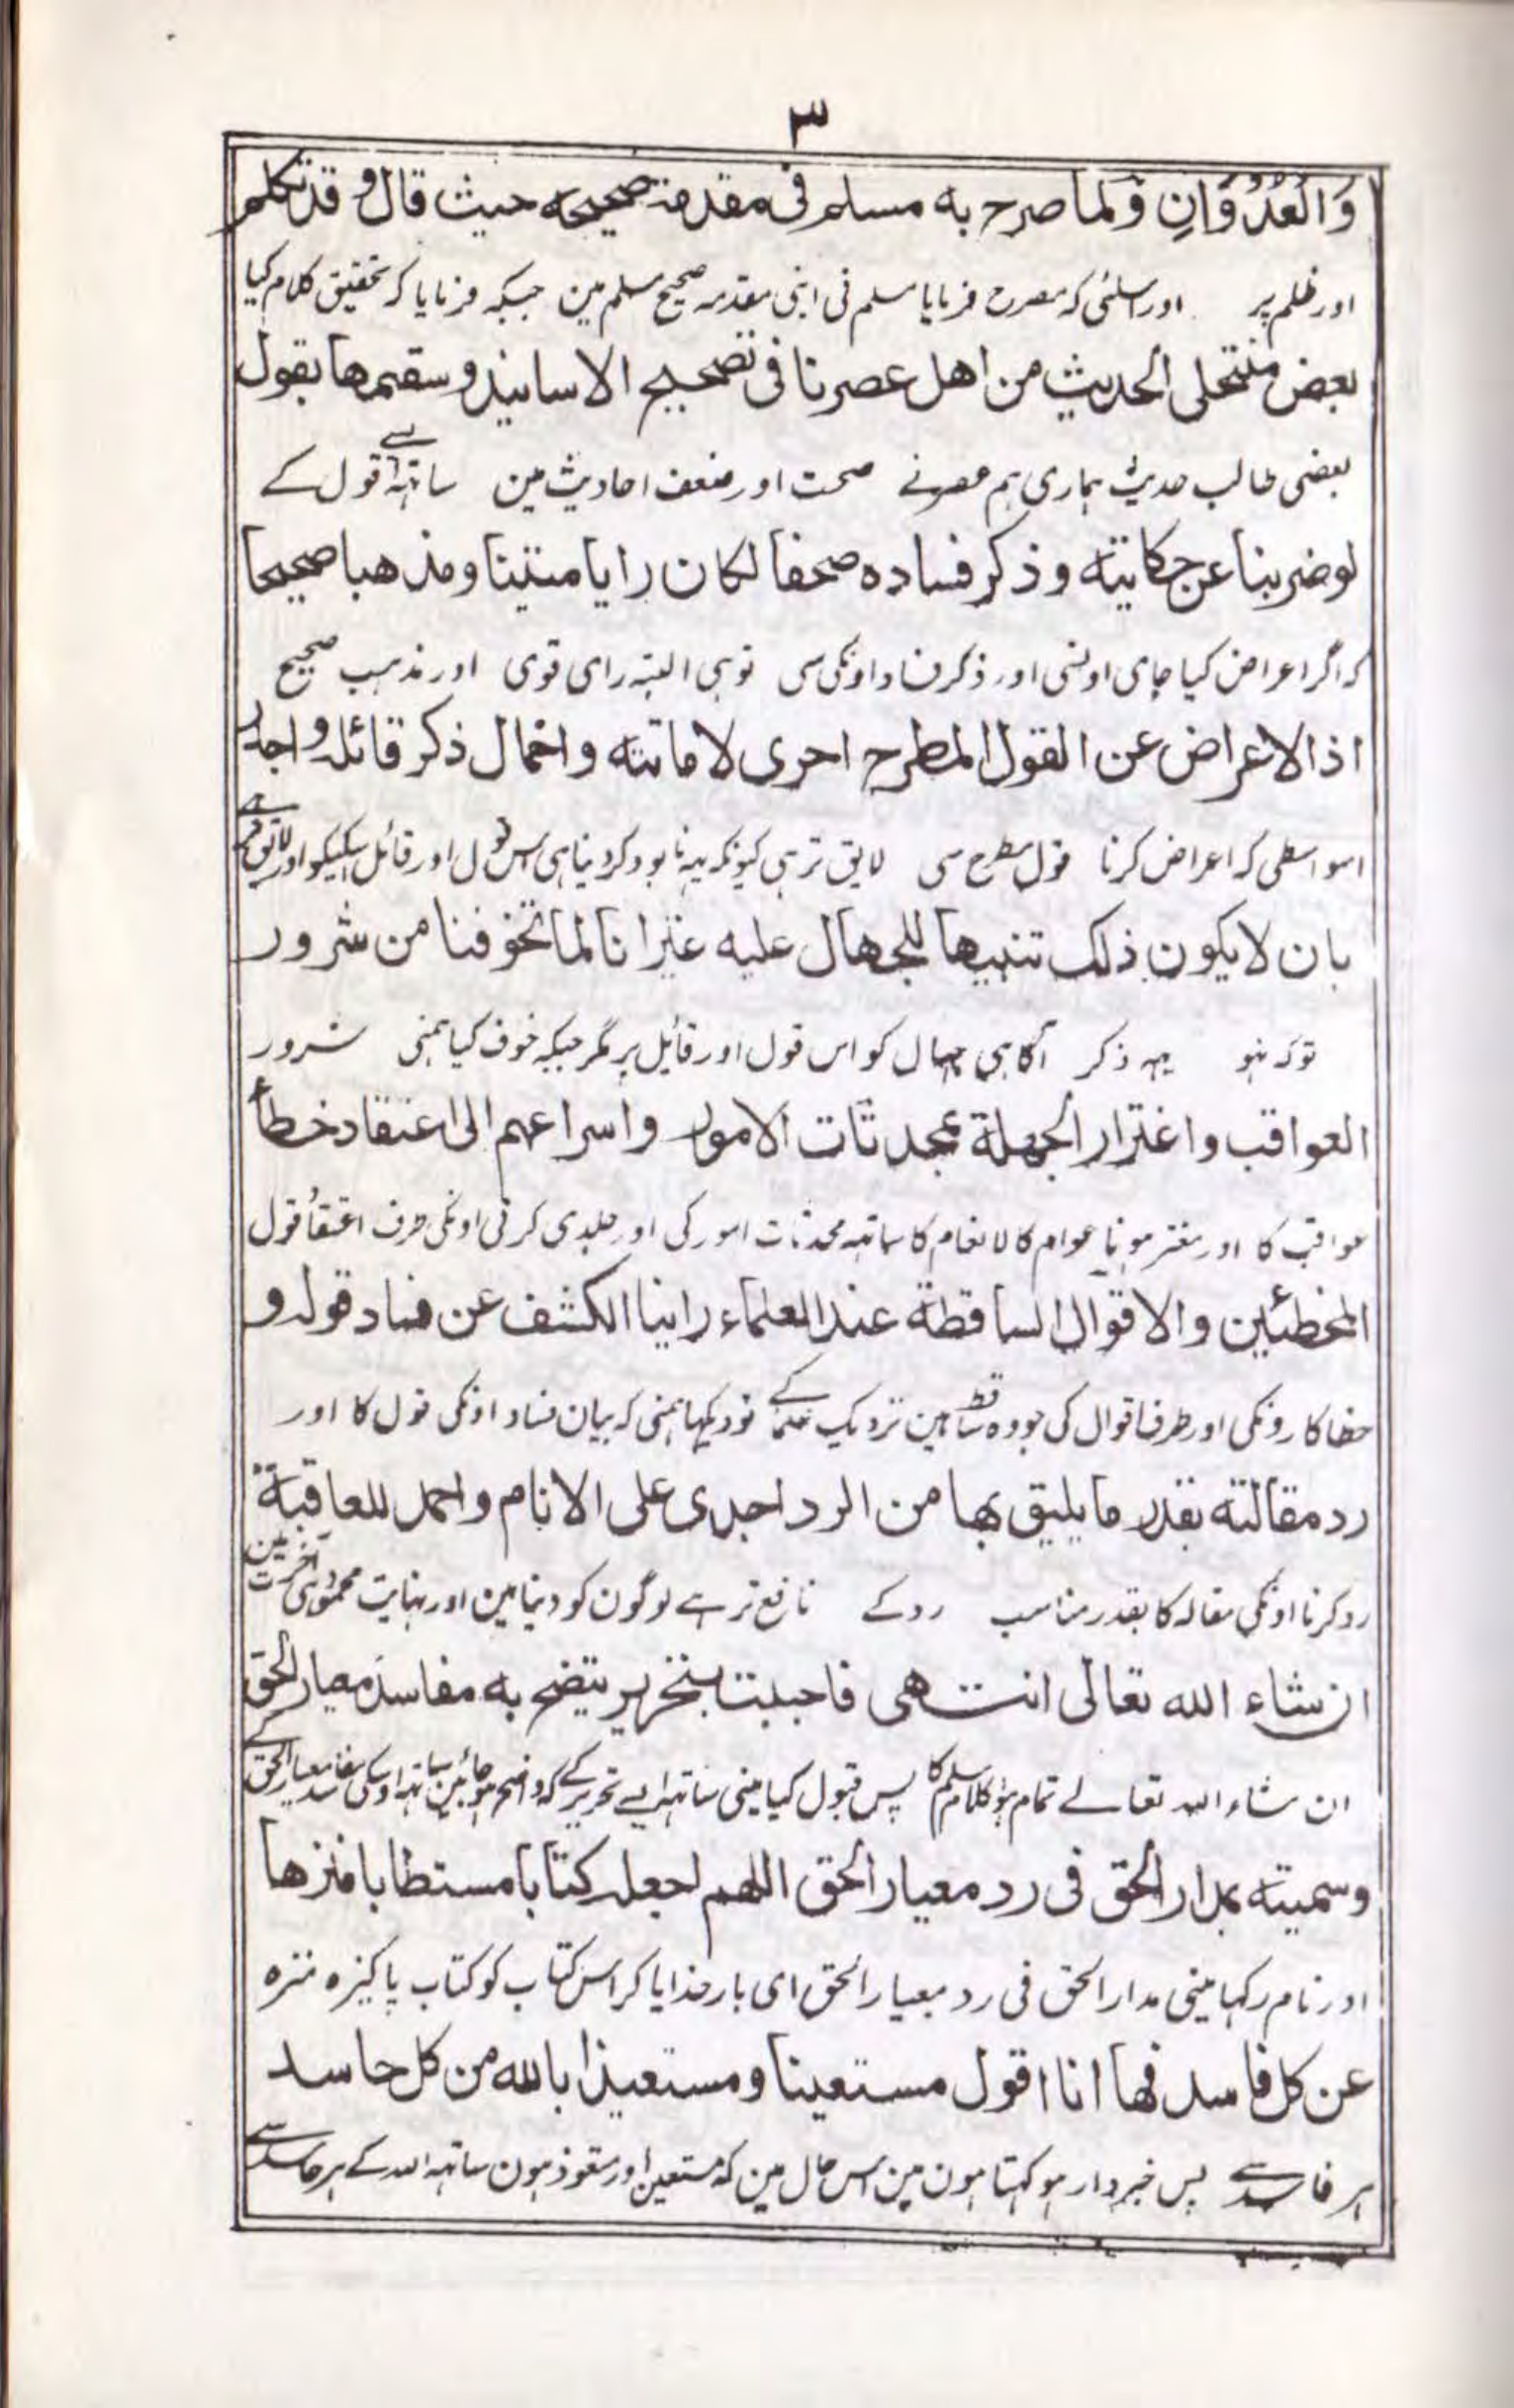 ٣
وَالْعُدْوَانِ وَلما صرح به مسلم فی مقدمة صحیحه حیث قال و قد تکلم
اور ظلم پر اور اسلئی کہ مصرح فرمایا مسلم نی اپنی مقدمہ صحیح مسلم مین جبکہ فرمایا کہ تحقیق کلام کیا
بعض منتحلی الحدیث من اهل عصرنا فی تصحیح الاسانید و سقمها بقول
بعضی طالب حدیث ہماری ہم عصرنے صحت اور ضعف احادیث مین ساتہہ ایسے قول کے
لو ضربنا عن حکایته و ذکر فساده صحفا لکان رایا متینا و مذهبا صحیحا
کہ اگر اعراض کیا جای اوسی اور ذکر فساد اوکی سی توہی البتہ رای قوی اور مذہب صحیح
اذ الاعراض عن القول المطرح احری لاماتته و اخمال ذکر قائله و اجدر
اسواسطی کہ اعراض کرنا قول مطرح سی لایق تر ہی کیونکہ یہہ نابود کردینا ہی اس قول اور قائل اسکیکو اور لایق ہے
بان لا یکون ذلک تنبیها للجهال علیه غیر انا لما تخوفنا من شرور
توکہ نہو یہہ ذکر آگاہی جہال کو اس قول اور قائل پر مگر جبکہ خوف کیا ہمنی شرور
العواقب و اغترار الجهلة بمحدثات الامور و اسراعهم الی اعتقاد خطأ
عواقب کا اور مغتر ہونا عوام کالانعام کا ساتہہ محدثات امور کی اور جلدی کرنی اونکی طرف اعتقاد قول
المخطئین و الاقوال الساقطة عند العلماء راینا الکشف عن فساد قوله و
خطا کارونکی اور طرف اقوال کی جو وہ ساقط ہین نزدیک علما کے تو دیکہا ہمنی کہ بیان فساد اونکی قول کا اور
رد مقالته بقدر ما یلیق بها من الرد اجدی علی الانام و احمد للعاقبة
رد کرنا اونکی مقالہ کا بقدر مناسب رد کے نافع تر ہے لوگون کو دنیا مین اور نہایت محمود ہی آخرت مین
ان شاء الله تعالی انتهی فاجبت بتحریر یتضح به مفاسد معیار الحق
ان شاء اللہ تعالے تمام ہوا کلام مسلم کا پس قبول کیا مینی ساتہہ ایسے تحریر کے کہ واضح ہو جائین ساتہہ اوسکی مفاسد معیار الحق کے
و سمیته بمدار الحق فی رد معیار الحق اللهم اجعله کتابا مستطابا منزها
اور نام رکہا مینی مدار الحق فی رد معیار الحق ای بار خدایا کر اس کتاب کو کتاب پاکیزہ منزہ
عن کل فاسد فها انا اقول مستعینا و مستعیذا بالله من کل حاسد
ہر فاسد سے پس خبردار ہو کہتا ہون مین اس حال مین کہ مستعین اور متعوذ ہون ساتہہ اللہ کے ہر حاسد سے